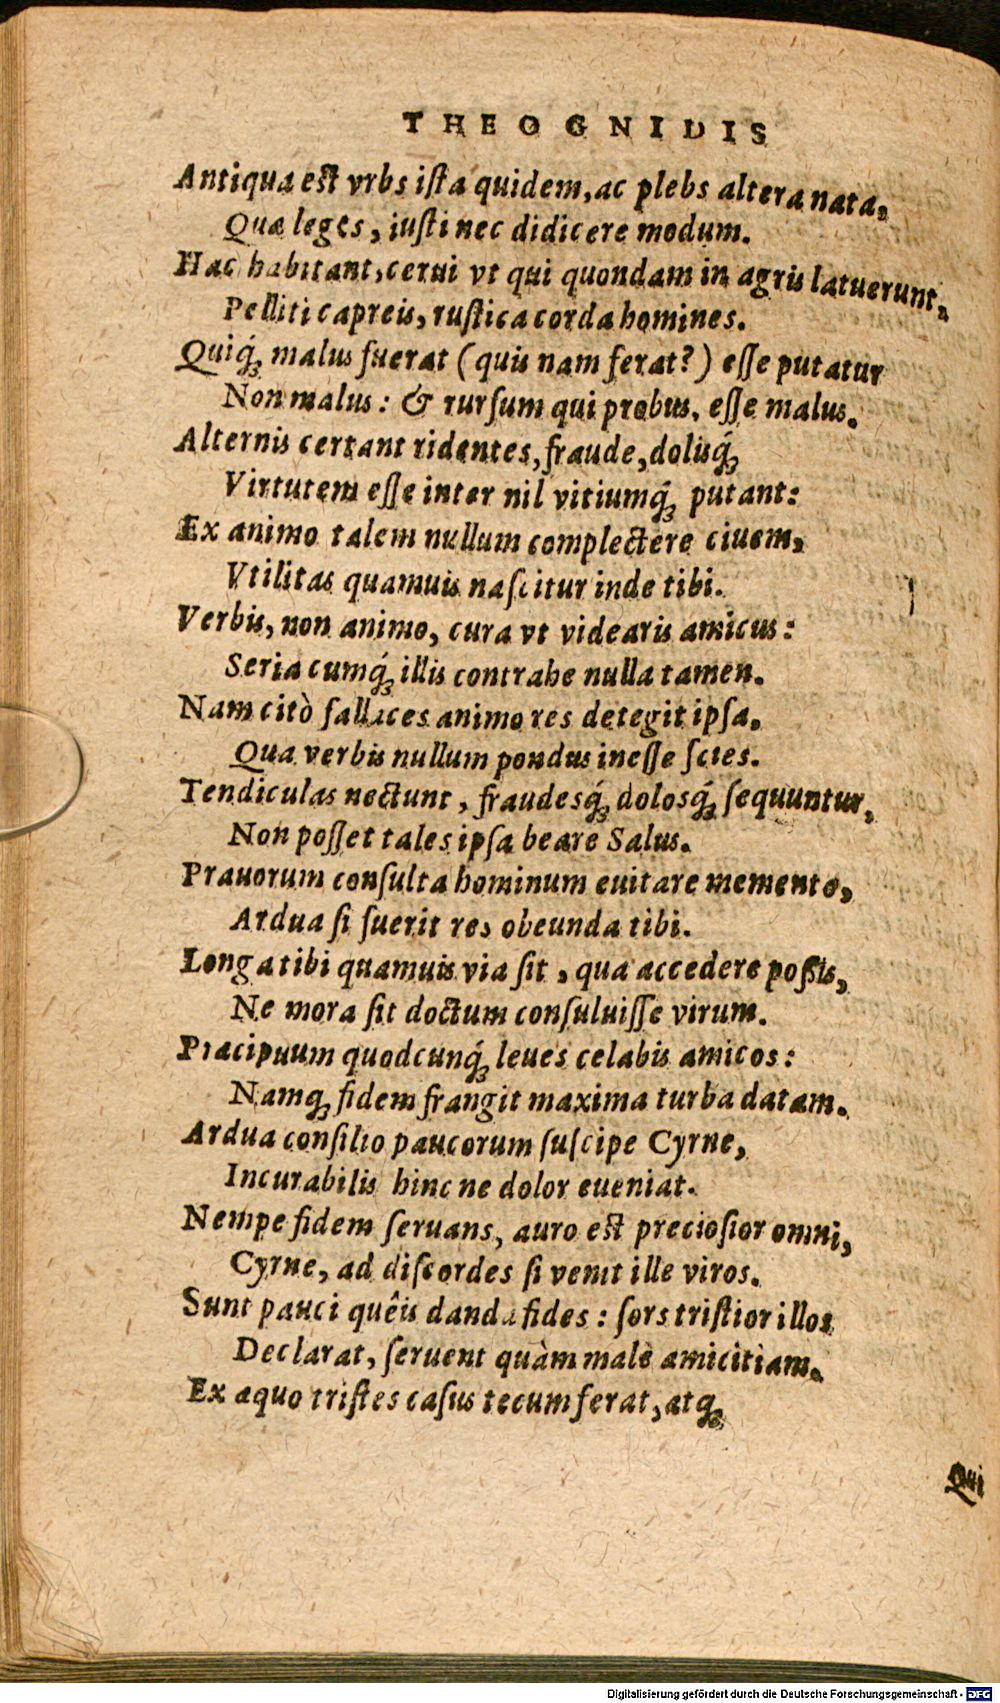 THEOGNIDIS
Antiqua est vrbs ista quidem, ac plebs altera nata,
Quæ leges, iusti nec didicere modum.
Hac habitant, cerui vt qui quondam in agris latuerunt,
Pelliti capreis, rustica corda homines.
Quiq́ꝫ malus fuerat (quis nam ferat?) esse putatur
Non malus: & rursum qui probus, esse malus.
Alternis certant ridentes, fraude, dolisq́ꝫ
Virtutem esse inter nil vitiumq́ꝫ putant:
Ex animo talem nullum complectere ciuem,
Vtilitas quamuis nascitur inde tibi.
Verbis, non animo, cura vt videaris amicus:
Seria cumq́ꝫ illis contrahe nulla tamen.
Nam citò fallaces animo res detegit ipsa,
Qua verbis nullum pondus inesse scies.
Tendiculas nectunt, fraudesq́ꝫ dolosq́ꝫ sequuntur,
Non posset tales ipsa beare Salus.
Prauorum consulta hominum euitare memento,
Ardua si fuerit res obeunda tibi.
Longa tibi quamuis via sit, qua accedere possis,
Ne mora sit doctum consuluisse virum.
Præcipuum quodcunq́ꝫ leues celabis amicos:
Namqꝫ fidem frangit maxima turba datam.
Ardua consilio paucorum suscipe Cyrne,
Incurabilis hinc ne dolor eueniat.
Nempe fidem seruans, auro est preciosior omni,
Cyrne, ad discordes si venit ille viros.
Sunt pauci quêis danda fides: sors tristior illos
Declarat, seruent quàm malè amicitiam.
Ex æquo tristes casus tecum ferat, atqꝫ
Qui
Digitalisierung gefördert durch die Deutsche Forschungsgemeinschaft - DFG